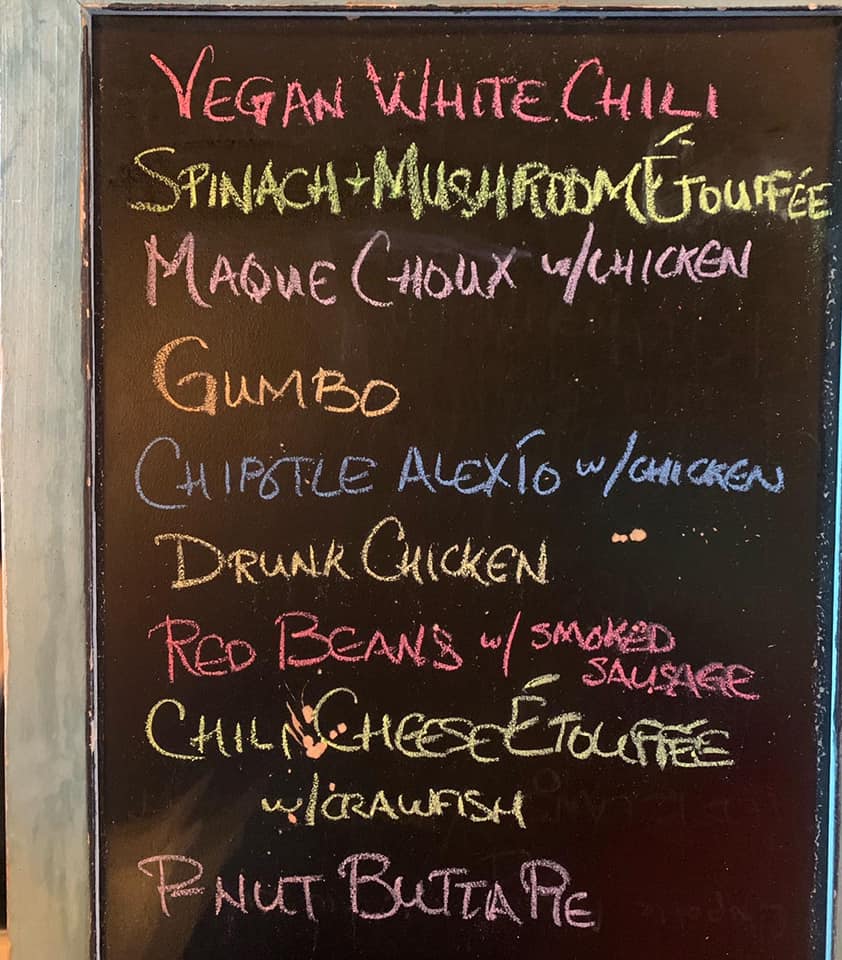 VEGAN WHITE CHILI
SPINACH + MUSHROOM ÉTOUFFÉE
MAQUE CHOUX w/CHICKEN
GUMBO
CHIPOTLE ALEXIO w/CHICKEN
DRUNK CHICKEN
RED BEANS w/ SMOKED
SAUSAGE
CHILI CHEESE ÉTOUFFÉE
w/CRAWFISH
P-NUT BUTTA PIE